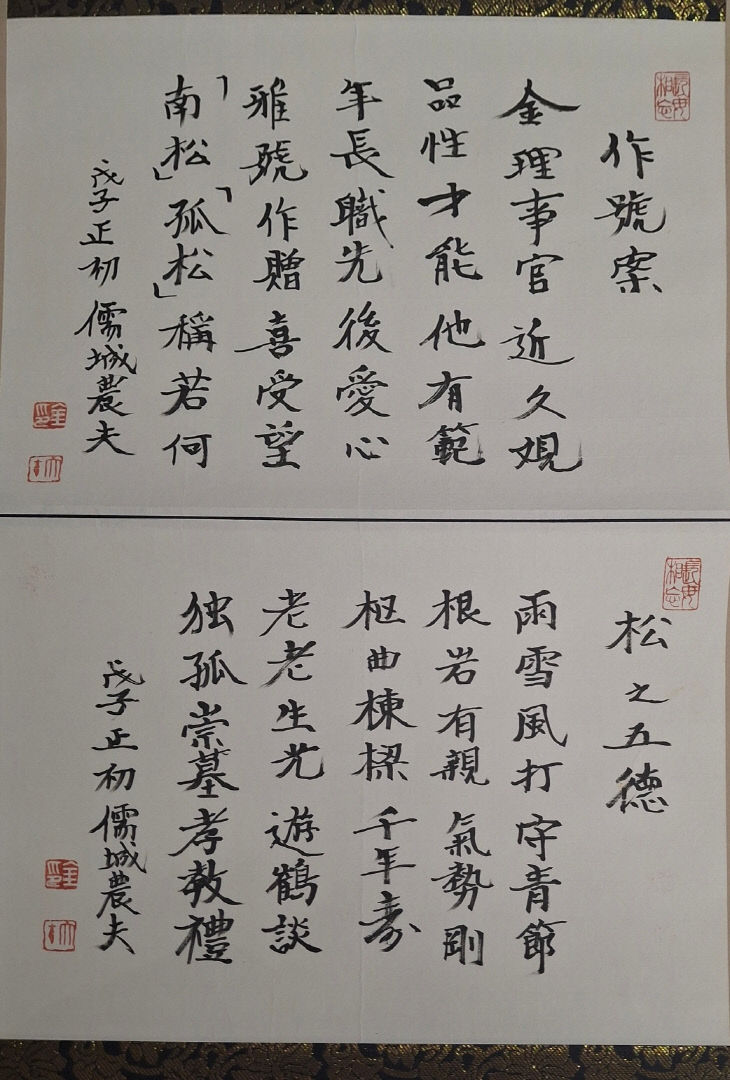 長毋相忘
作號案
金理事官近久
品性才能他有範
年長職先後愛心
雅號作贈喜受望
「南松」「孤松」稱若何
戊子正初 儒城農夫
長毋相忘
松之五德
雨雪風打守青節
根岩有親氣勢剛
枢曲棟樑千年
老老生光遊鶴談
独孤崇墓孝教禮
戊子正初 儒城農夫